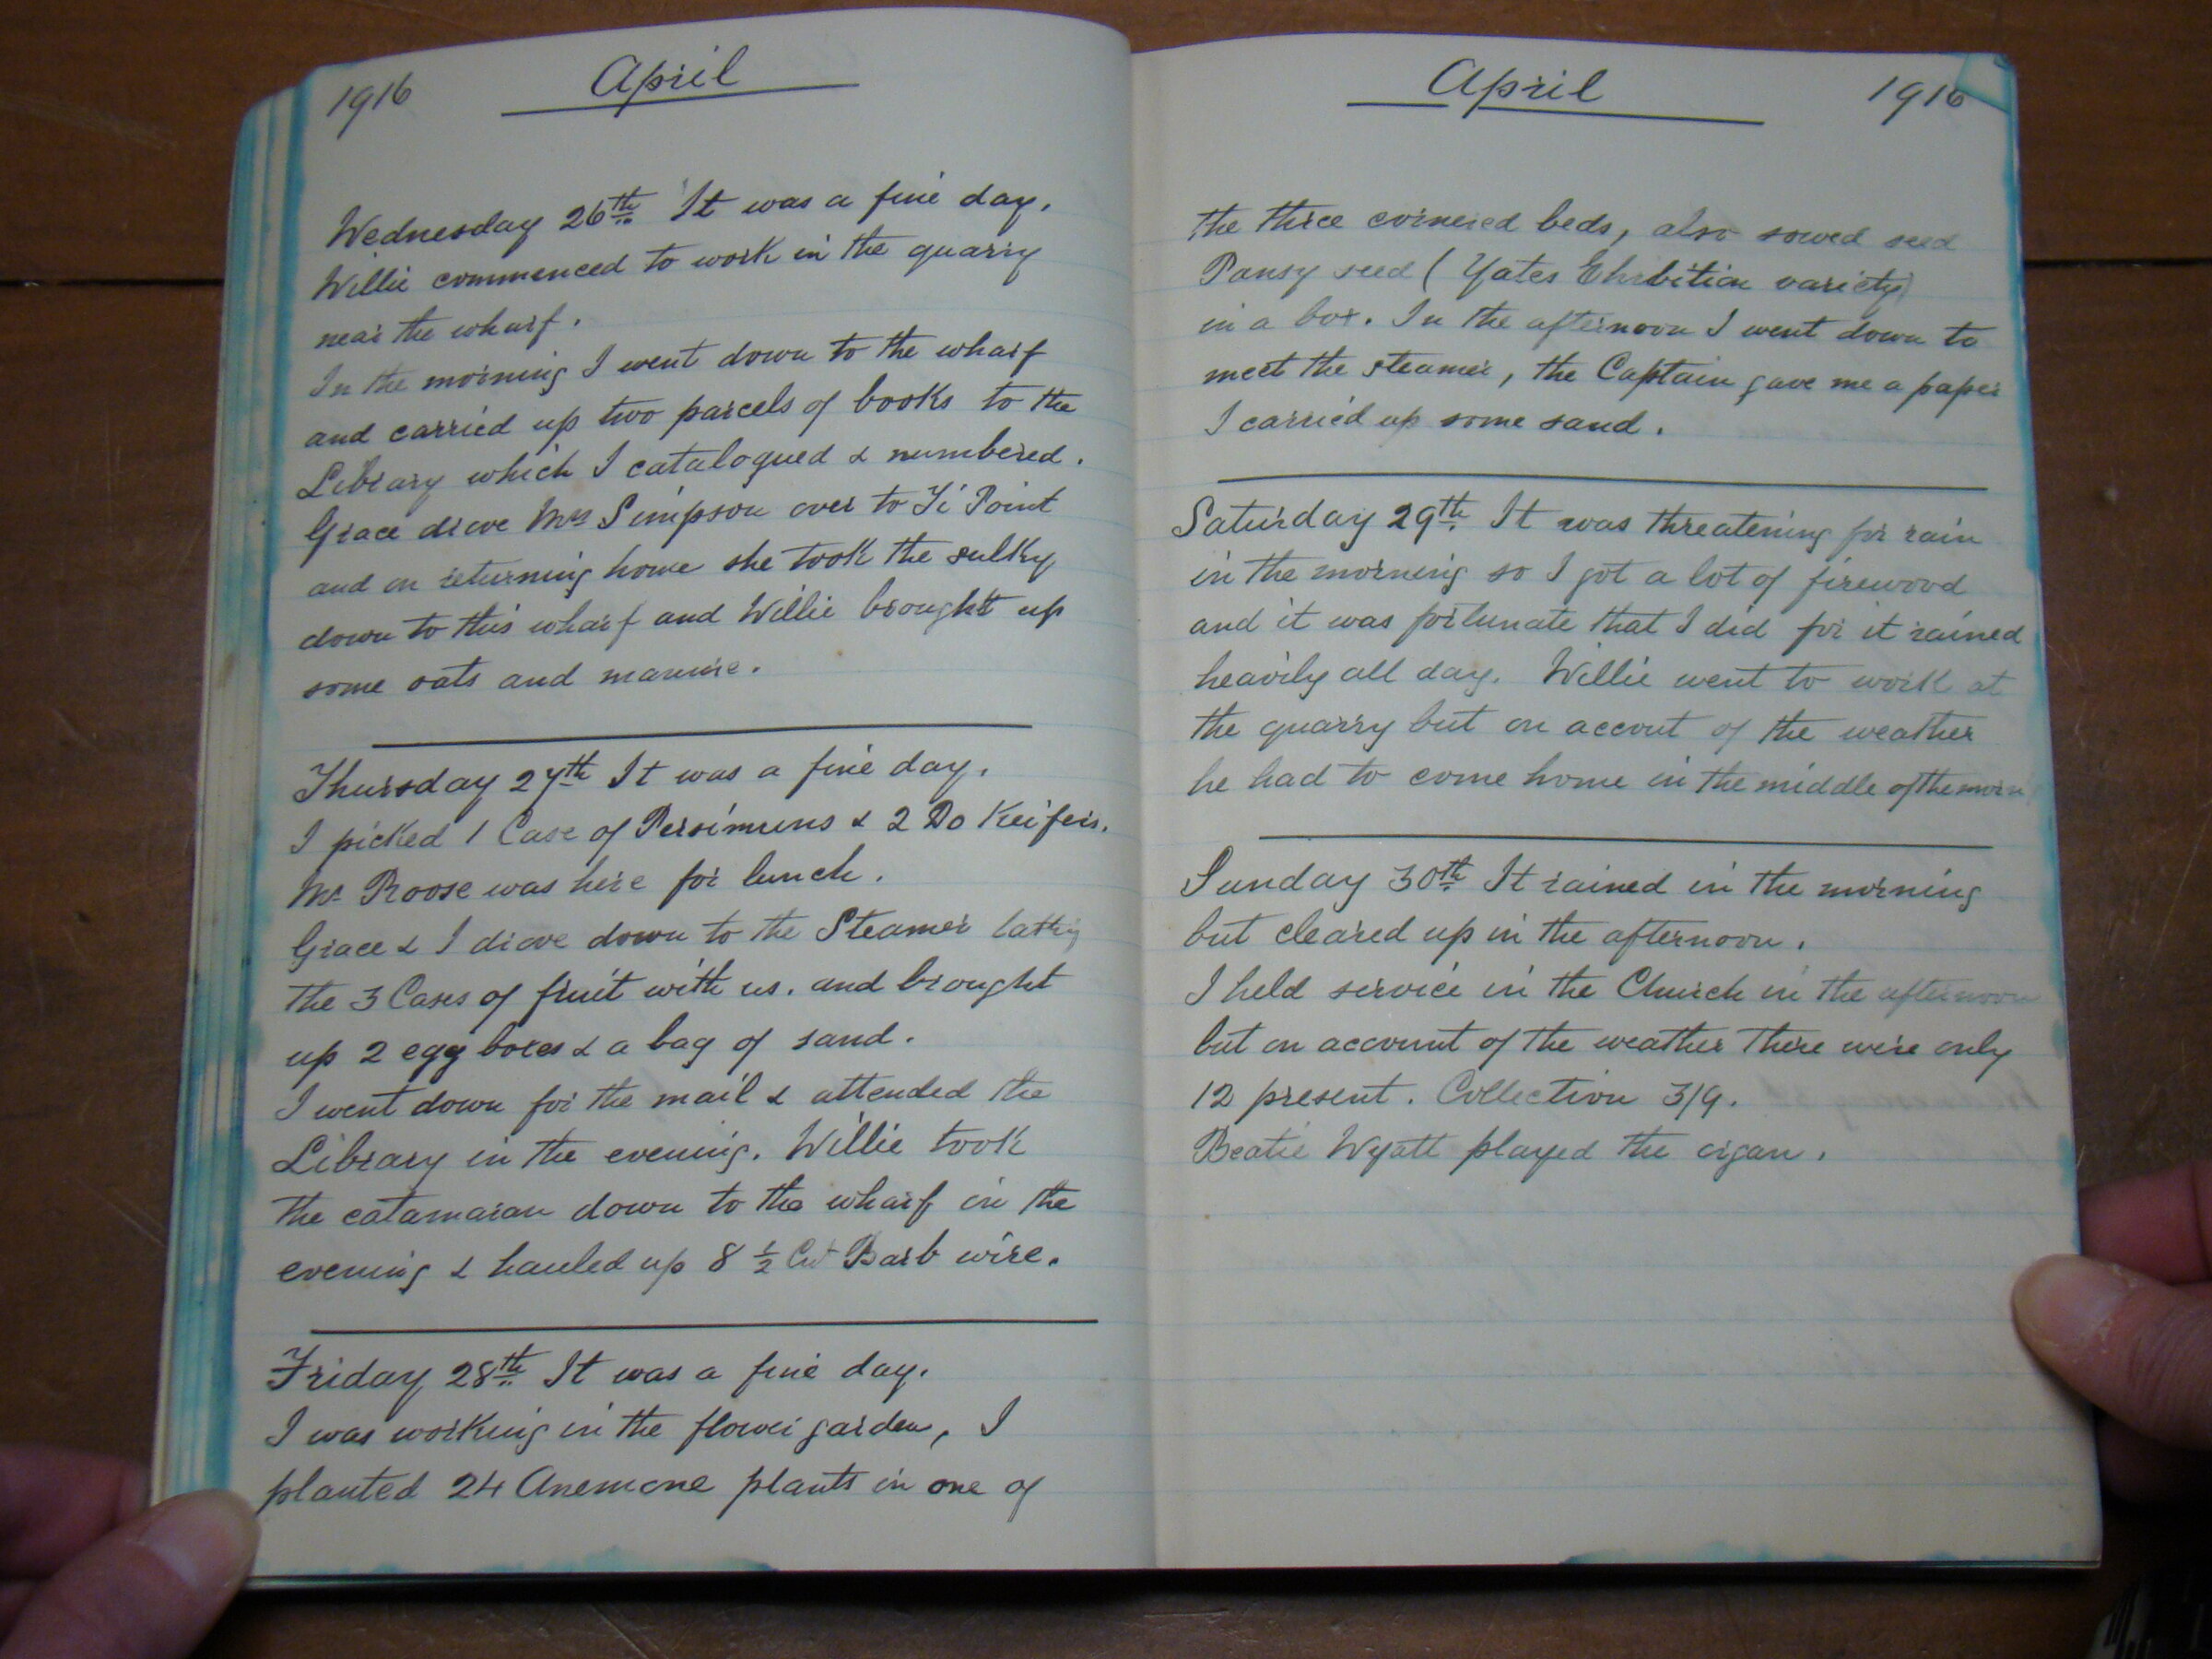 1916 April
Wednesday 26th It was a fine day.
Willie commenced to work in the quarry
near the wharf.
In the morning I went down to the wharf
and carried up two parcels of books to the
Library which I catalogued & numbered.
Grace drove Mrs Simpson over to Ti Point
and on returning home she took the sulky
down to this wharf and Willie brought up
some oats and manure.
Thursday 27th It was a fine day.
I picked 1 Case of Persimuns & 2 Do Keifers.
Mr Roose was here for lunch.
Grace & I drove down to the Steamer
the 3 Cases of fruit with us. and brought
up 2 egg boxes & a bag of sand.
I went down for the mail & attended the
Library in the evening. Willie took
the catamaran down to the wharf in the
evening & hauled up 8 1/2 Cwt Barb wire.
Friday 28th It was a fine day.
I was working in the flower garden, I
planted 24 Anemone plants in one of
April 1916
the three cornered beds, also sowed seed
Pansy seed (Yates Ehibition variety)
in a box. In the afternoon I went down to
meet the steamer, the Captain gave me a paper
I carried up some sand.
Saturday 29th It was threatening for rain
in the morning so I got a lot of firewood
and it was forlunate that I did for it rained
heavily all day. Willie went to work at
the quarry but on accout of the weather
he had to come home in the middle of the morn
Sunday 30th It rained in the morning
but cleared up in the afternoon.
I held service in the Church in the afternoon
but on account of the weather there were only
12 present. Collection 3/9.
Beatie Wyatt played the organ.